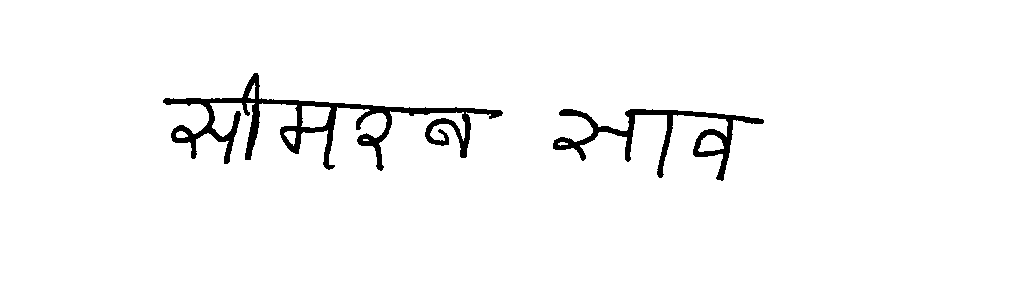 सीमरन साव